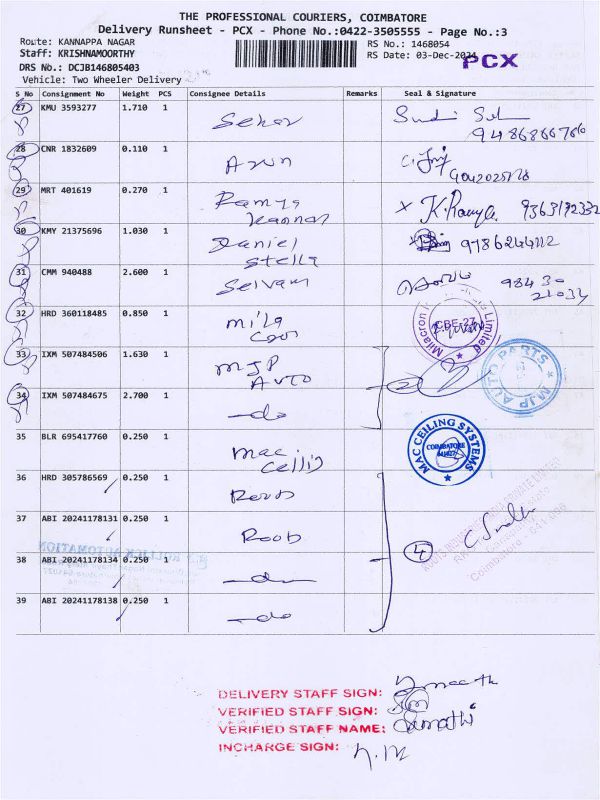 THE PROFESSIONAL COURIERS, COIMBATORE
Delivery Runsheet - PCX - Phone No.:0422-3505555 - Page No.:3
Route: KANNAPPA NAGAR
RS No.: 1468054
Staff: KRISHNAMOORTHY
RS Date: 03-Dec-2024
PCX
DRS No.: DCJB146805403
Vehicle: Two Wheeler Delivery
S No Consignment No Weight PCS Consignee Details Remarks Seal & Signature
27 KMU 3593277 1.710 1 Sekar
28 CNR 1832609 0.110 1 Arun
29 MRT 401619 0.270 1 Ramya Kannan K. Ramya 9363192332
30 KMY 21375696 1.030 1 Daniel Stella 9786244112
31 CMM 940488 2.600 1 Selvam 98430 21034
32 HRD 360118485 0.850 1 Mila
CBE-27
33 IXM 507484506 1.630 1 MJP Auto 2
MJP AUTO PARTS
34 IXM 507484675 2.700 1 -do
35 BLR 695417760 0.250 1 Mac
MAC CEILING SYSTEMS
COIMBATORE
641027
36 HRD 305786569 0.250 1
37 ABI 20241178131 0.250 1
38 ABI 20241178134 0.250 1 4
39 ABI 20241178138 0.250 1 -do
DELIVERY STAFF SIGN:
VERIFIED STAFF SIGN:
VERIFIED STAFF NAME: Sumathi
INCHARGE SIGN: